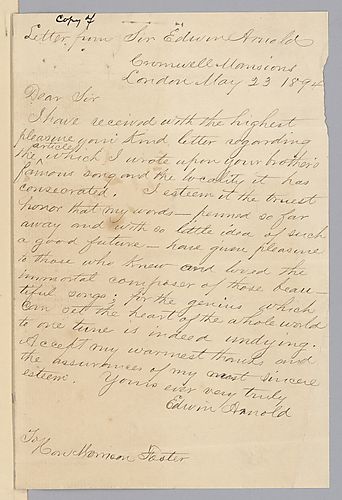 Copy of
Letter from Sir Edwin Arnold
Cromwell Mansions
London May 23 1894
Dear Sir
I have received with the highest
pleasure your kind letter regarding
the articles which I wrote upon your brothers
famous song and the locality it has
consecrated. I esteem it the truest
honor that my words — penned so far
away and with so little idea of such
a good future — have given pleasure
to those who knew and loved the
immortal composer of those beau-
tiful songs; for the genius which
can set the heart of the whole world
to one tune is indeed undying.
Accept my warmest thanks and
the assurances of my most sincere
esteem. Yours ever very truly
Edwin Arnold
To
Hon. Morrison Foster